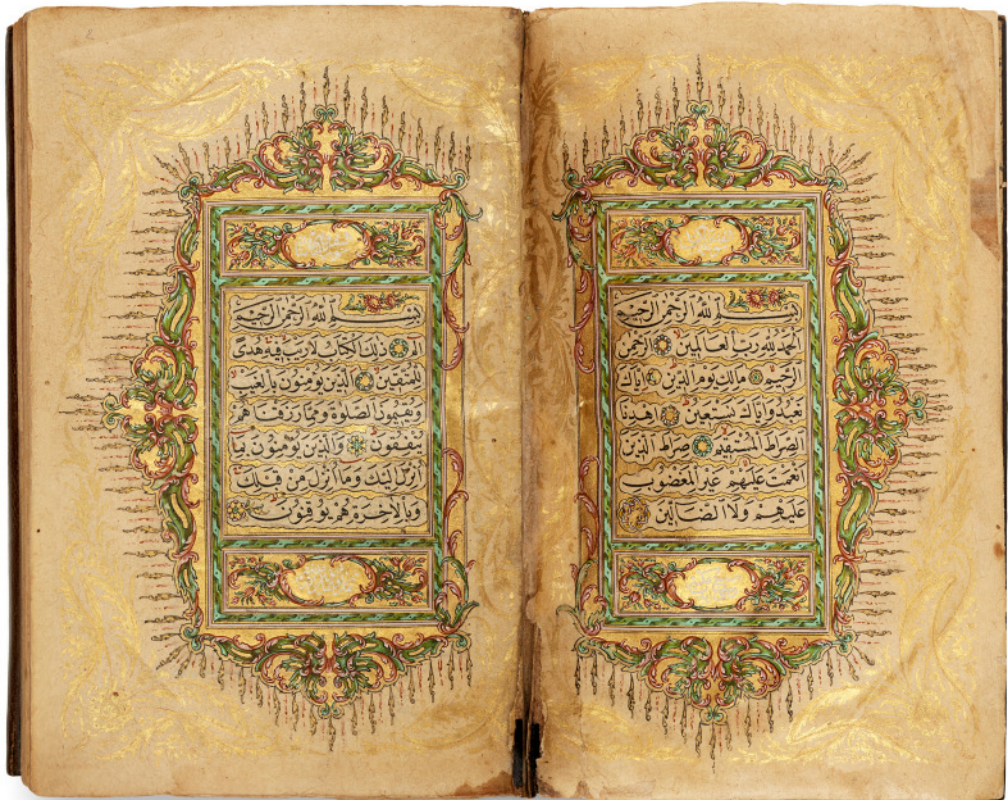 بِسْمِ اللّٰهِ الرَّحْمٰنِ الرَّحِيمِ
الْحَمْدُ لِلّٰهِ رَبِّ الْعَالَمِينَ الرَّحْمٰنِ
الرَّحِيمِ مَالِكِ يَوْمِ الدِّينِ اِيَّاكَ
نَعْبُدُ وَاِيَّاكَ نَسْتَعِينُ اِهْدِنَا
الصِّرَاطَ الْمُسْتَقِيمَ صِرَاطَ الَّذِينَ
اَنْعَمْتَ عَلَيْهِمْ غَيْرِ الْمَغْضُوبِ
عَلَيْهِمْ وَلَا الضَّالِّينَ
بِسْمِ اللّٰهِ الرَّحْمٰنِ الرَّحِيمِ
الٓمٓ ذٰلِكَ الْكِتَابُ لَا رَيْبَ فِيهِ هُدًى
لِلْمُتَّقِينَ الَّذِينَ يُؤْمِنُونَ بِالْغَيْبِ
وَيُقِيمُونَ الصَّلٰوةَ وَمِمَّا رَزَقْنَاهُمْ
يُنْفِقُونَ وَالَّذِينَ يُؤْمِنُونَ بِمَا
اُنْزِلَ اِلَيْكَ وَمَا اُنْزِلَ مِنْ قَبْلِكَ
وَبِالْاٰخِرَةِ هُمْ يُوقِنُونَ